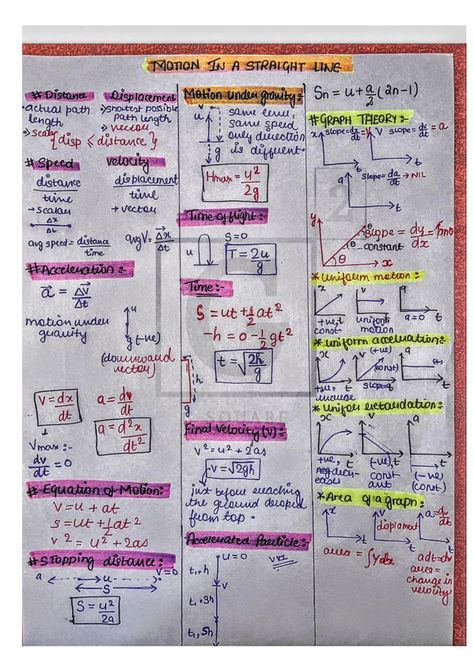 MOTION IN A STRAIGHT LINE
# Distance
Displacement
→ actual path
length
→ scalar
→ shortest possible
path length
→ vector
{disp ≤ distance}
# Speed
velocity
distance
time
displacement
time
→ scalar
→ vector
Δx
Δt
avg speed = distance
time
avg V = Δx
Δt
# Acceleration :-
a = ΔV
Δt
motion under
gravity
u
g (-ve)
(downward
vector)
V = dx
dt
a = dv
dt
a = d²x
dt²
Vmax :-
dv
dt = 0
# Equation of Motion:-
V = u + at
S = ut + 1/2 at²
V² = u² + 2as
# Stopping distance:-
a
u
V=0
S
S = u²
2a
Motion under gravity:-
V
u
g
same level,
same speed
only direction
is different
Hmax = u²
2g
Time of flight:-
u
S=0
T = 2u
g
Time:-
S = ut + 1/2 at²
-h = 0 - 1/2 gt²
h
g
t = √2h
g
SQUARE
Final Velocity (V):-
V² = u² + 2as
V = √2gh
just before reaching
the ground dropped
from top.
Accelerated Particle:-
u = 0
t₁, h
V
t₁, 3h
t₁, 5h
Sn = u + a/2 (2n-1)
# GRAPH THEORY:-
x
slope = dx/dt = V
t
V
slope = dv/dt = a
t
a
slope = da/dt → NIL
t
y
θ
θ
x
slope = dy
dx
constant
* Uniform motion:-
x
t
+ve,
const
V
t
uniform
motion
a
t
a=0
* uniform acceleration:-
x
t
+ve,
increase
V
(+ve)
(const)
t
slope
a
(+ve)
t
* Uniform retardation:-
x
t
+ve,
V
t
(-ve),
const
ant
a
t
(-ve)
(const)
* Area of a graph:-
x
t
V
displacement
t
a = dv
dt
t
area = ∫ydx
adt = dv
area =
change in
velocity